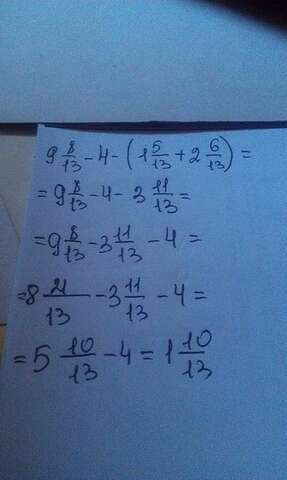 9 8/13 - 4 - (1 5/13 + 2 6/13) =
= 9 8/13 - 4 - 3 11/13 =
= 9 8/13 - 3 11/13 - 4 =
= 8 21/13 - 3 11/13 - 4 =
= 5 10/13 - 4 = 1 10/13